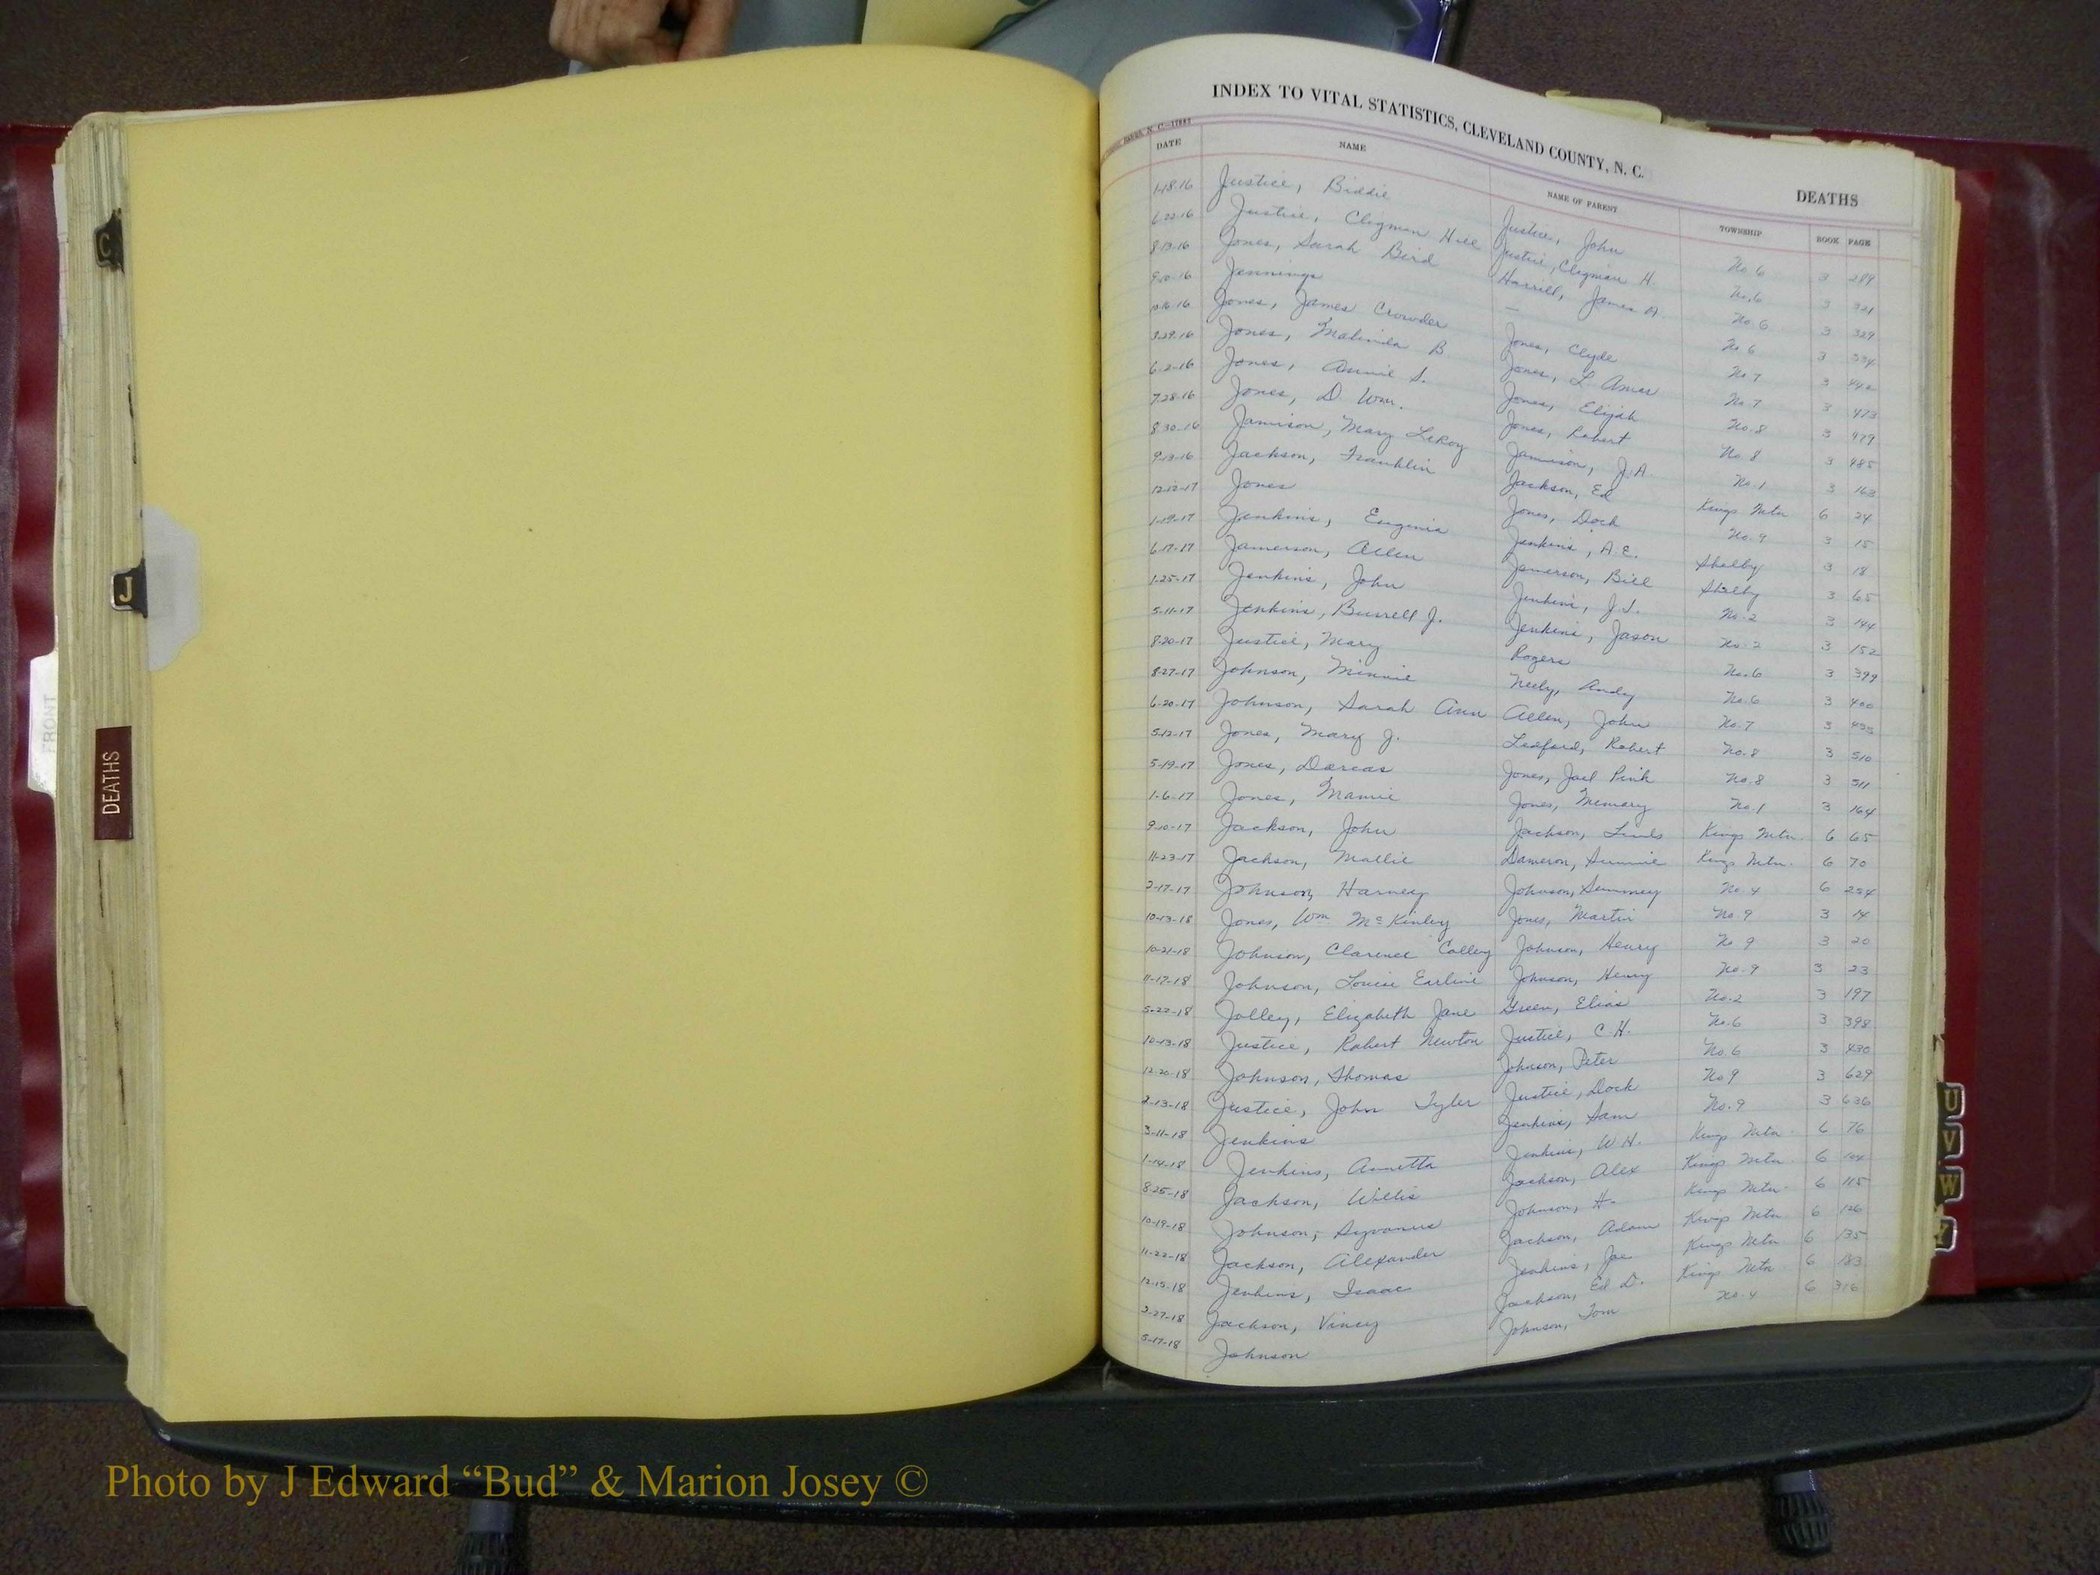 C
J
FRONT
DEATHS
INDEX TO VITAL STATISTICS, CLEVELAND COUNTY, N. C.
DEATHS
DATE NAME NAME OF PARENT TOWNSHIP BOOK PAGE
1-18-16 Justice, Biddie Justice, John No. 6 3 289
6-22-16 Justice, Clegman Hill Justice, Clegman H. No. 6 3 321
8-13-16 Jones, Sarah Bird Harrill, James A. No 6 3 329
9-10-16 Jennings — No 6 3 334
10-16-16 Jones, James Crowder Jones, Clyde No 7 3 442
3-29-16 Jones, Malinda B Jones, L. Ames No 7 3 473
6-2-16 Jones, Annie S. Jones, Elijah No. 8 3 479
7-28-16 Jones, D. Wm. Jones, Robert No. 8 3 485
8-30-16 Jamison, Mary LeRoy Jamison, J. A. No. 1 3 163
9-13-16 Jackson, Franklin Jackson, Ed Kings Mtn 6 24
12-12-17 Jones Jones, Dock No. 9 3 15
1-19-17 Jenkins, Eugenia Jenkins, A. E. Shelby 3 18
6-17-17 Jamerson, Allen Jamerson, Bill Shelby 3 65
1-25-17 Jenkins, John Jenkins, J. No. 2 3 144
5-11-17 Jenkins, Burrell J. Jenkins, Jason No. 2 3 152
8-20-17 Justice, Mary Rogers No. 6 3 399
8-27-17 Johnson, Minnie Neely, Andy No. 6 3 400
6-20-17 Johnson, Sarah Ann Allen, John No. 7 3
5-12-17 Jones, Mary J. Ledford, Robert No. 8 3 510
5-19-17 Jones, Darcas Jones, Joel Pink No. 8 3 511
1-6-17 Jones, Mamie Jones, Memory No. 1 3 164
9-10-17 Jackson, John Jackson, Kings Mtn. 6 65
11-23-17 Jackson, Mallie Dameron, Kings Mtn. 6 70
2-17-17 Johnson, Harvey Johnson, Summey No. 4 6 234
10-13-18 Jones, Wm McKinley Jones, Martin No. 9 3 14
10-21-18 Johnson, Clarence Colley Johnson, Henry No 9 3 20
11-17-18 Johnson, Louise Earline Johnson, Henry No. 9 3 23
5-22-18 Jolley, Elizabeth Jane Green, Elias No. 2 3 197
10-13-18 Justice, Robert Newton Justice, C. H. No. 6 3 398
12-20-18 Johnson, Thomas Johnson, Peter No. 6 3 430
2-13-18 Justice, John Tyler Justice, Dock No 9 3 629
3-11-18 Jenkins Jenkins, Sam No. 9 3 636
1-14-18 Jenkins, Annetta Jenkins, W. H. Kings Mtn. 6 76
8-25-18 Jackson, Willis Jackson, Alex Kings Mtn. 6 104
10-19-18 Johnson, Syvanus Johnson, H. Kings Mtn. 6 115
11-22-18 Jackson, Alexander Jackson, Adam Kings Mtn. 6 126
12-15-18 Jenkins, Isaac Jenkins, Joe Kings Mtn 6 135
2-27-18 Jackson, Viney Jackson, Ed D. Kings Mtn. 6 183
5-17-18 Johnson Johnson, Tom No. 4 6 316
U
V
W
Y
Photo by J Edward “Bud” & Marion Josey ©